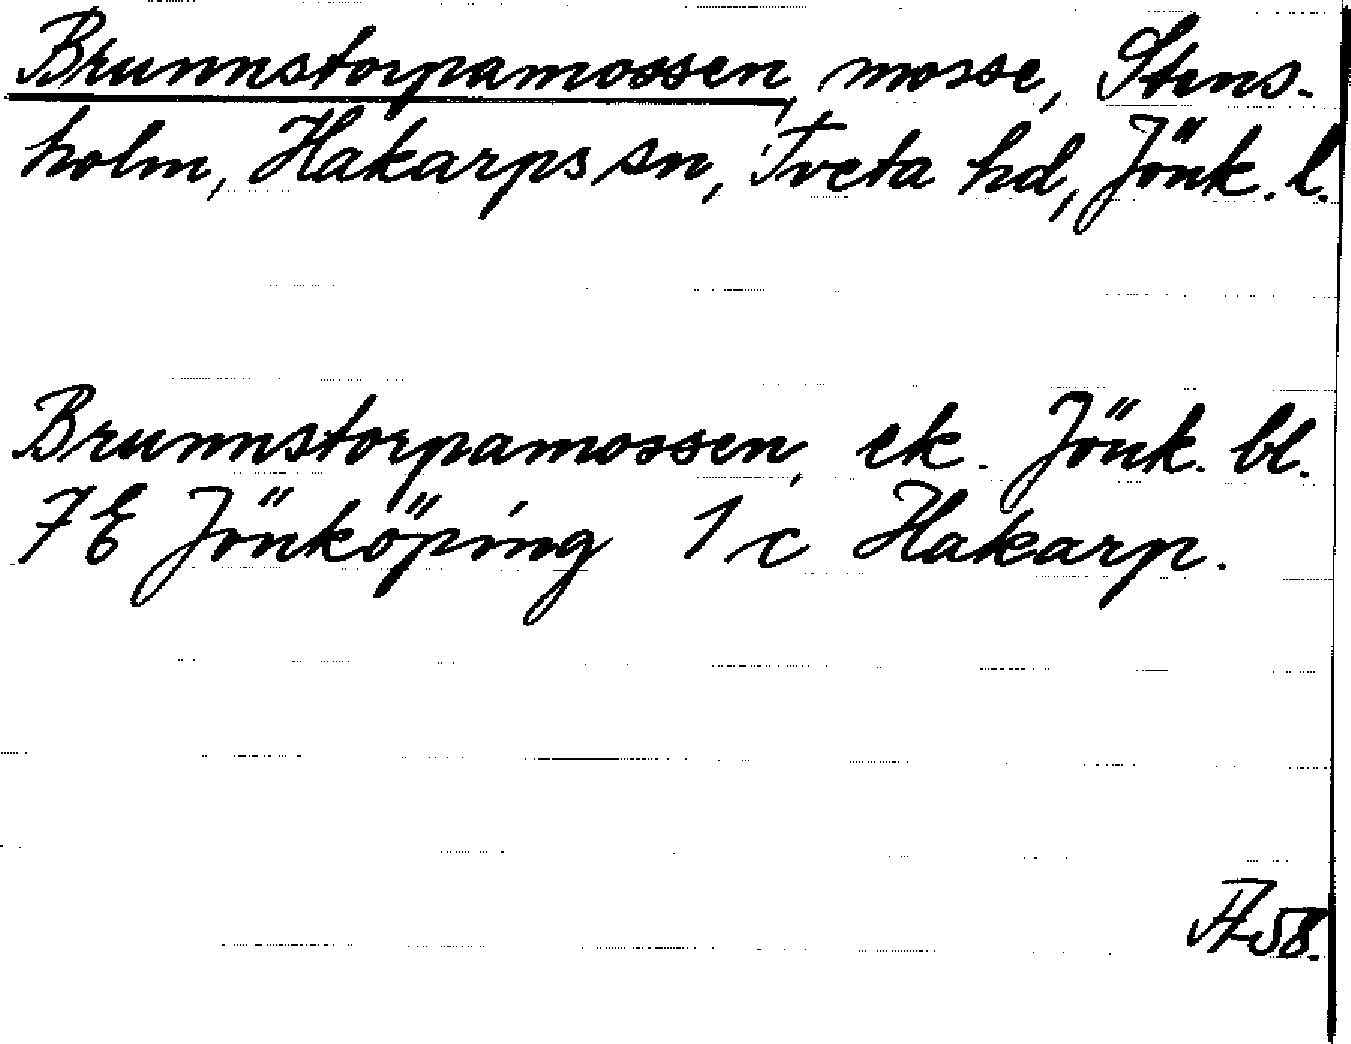 Brunnstorpamossen, mosse, Stens-
holm, Hakarps sn, Tveta hd, Jönk. l.
Brunnstorpamossen, ek. Jönk. bl.
7E Jönköping 1c Hakarp.
58.